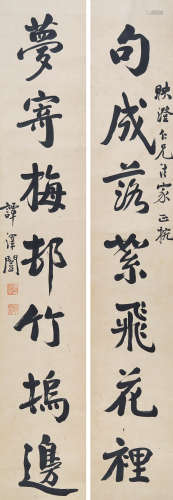 句成落絮飛花裡
映澄仁兄法家正捥
夢寄梅邨竹塢邊
譚澤闓